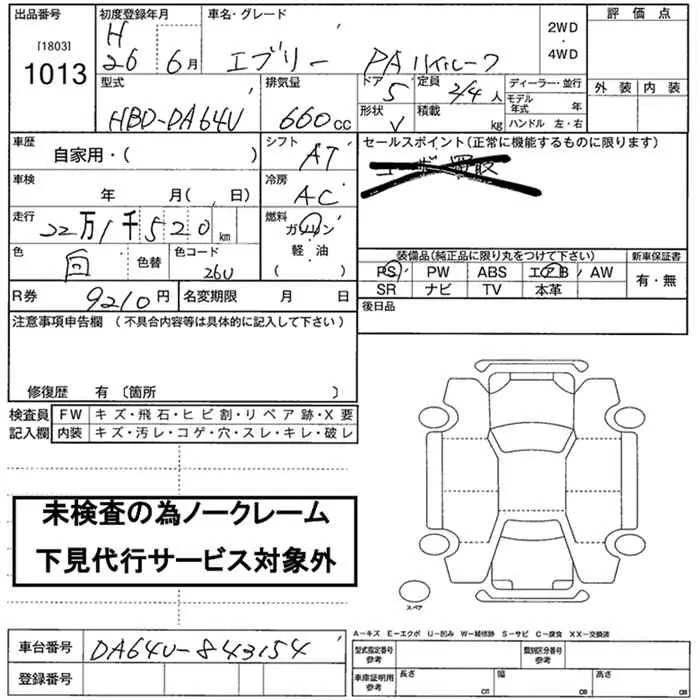 出品番号 初度登録年月 車名・グレード 2WD ・ 4WD 評価点
[1803]
1013 H 26 6月 エブリー PAハイルーフ
外装 内装
型式 排気量 ドア 定員 ディーラー・並行
HBD-DA64V 660cc 5 2/4人 モデル年式 年
形状 V 積載 kg ハンドル 左・右
車歴 自家用・( ) シフト AT セールスポイント(正常に機能するものに限ります)
車検 年 月( 日) 冷房 AC
走行 22万1千520km 燃料 ガソリン
軽・油
( )
色 色替 色コード 26U
装備品(純正品に限り丸をつけて下さい) 新車保証書
PS PW ABS エアB AW 有・無
SR ナビ TV 本革
R券 9210円 名変期限 月 日 後日品
注意事項申告欄 (不具合内容等は具体的に記入して下さい)
修復歴 有 〔箇所 〕
検査員 FW キズ・飛石・ヒビ割・リペア跡・X要
記入欄 内装 キズ・汚レ・コゲ・穴・スレ・キレ・破レ
未検査の為ノークレーム
下見代行サービス対象外
スペア
A-キズ E-エクボ U-凹み W-補修跡 S-サビ C-腐食 XX-交換済
車台番号 DA64V-843154
型式指定番号 参考 類別区分番号 参考
登録番号
車庫証明用 参考 長さ cm 幅 cm 高さ cm